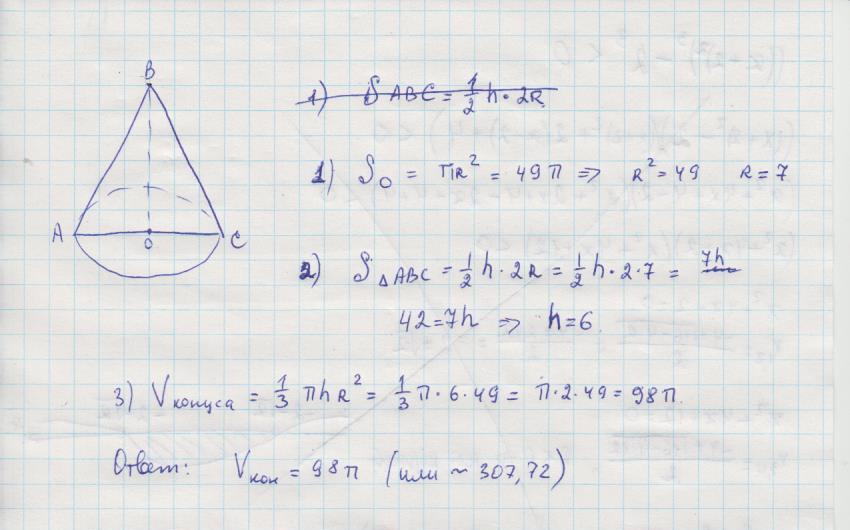 B
A O C
1) S ABC = 1/2 h · 2R
1) S_O = πR² = 49π ⇒ R² = 49 R = 7
2) S △ABC = 1/2 h · 2R = 1/2 h · 2 · 7 = 7h
42 = 7h ⇒ h = 6
3) V конуса = 1/3 πhR² = 1/3 π · 6 · 49 = π · 2 · 49 = 98π.
Ответ: V кон = 98π (или ~ 307,72)